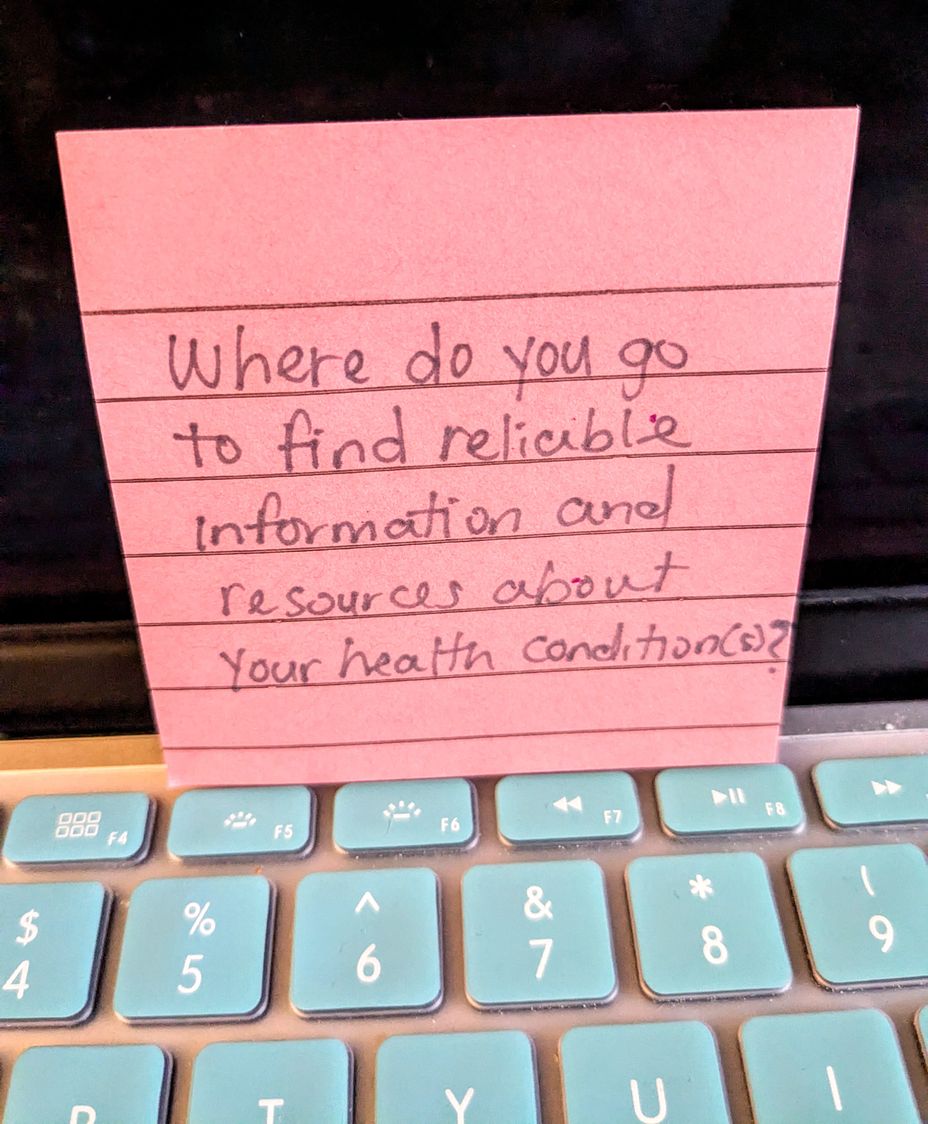 Where do you go
to find reliable
information and
resources about
your health condition(s)?
F4 F5 F6 F7 F8
$ % ^ & * (
4 5 6 7 8 9
R T Y U I